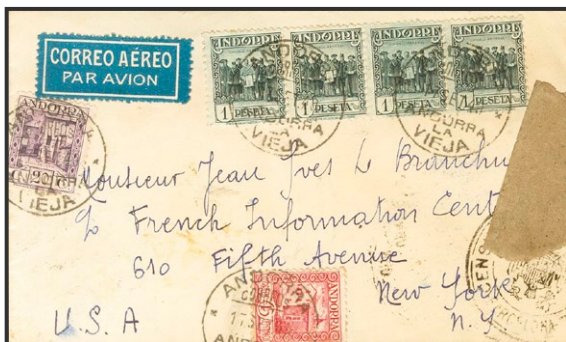 CORREO AÉREO
PAR AVION
ANDORRE
ANDORRE
ANDORRE
ANDORRE
1 PESETA
1 PESETA
1 PESETA
1 PESETA
ANDORRA
LA
VIEJA
ANDORRA
LA
VIEJA
ANDORRA
VIEJA
Monsieur Jean Yves L Branchu
c/o French Information Cent
610 Fifth Avenue
New York
N.Y
U.S.A
ANDORRA
CORREOS
CENS